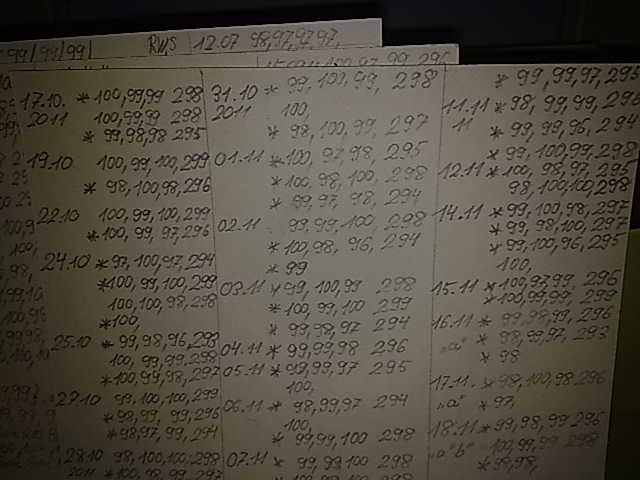 99/99/99/ RWS 12.07 98,97,97,97,
17.10. * 100,99,99 298
2011 100,99,99 298
* 99,98,98 295
19.10 100,99,100,299
* 98,100,98,296
22.10 100,99,100,299
* 100, 99, 97,296
24.10 * 97,100,97,294
* 100,99,100,299
100,100,98,298
* 100,
25.10 * 99,98,96,293
100, 99,99,298
* 100,99,98,297
27.10 99,100,100,299
* 98,99, 99,296
* 98,97, 99,294
28.10 98,100,100,298
2011 * 100,98,99,297
31.10 * 99,100,99, 298
2011 100,
* 98,100,99, 297
01.11 * 100, 97,98, 295
* 100,98,100, 298
* 99,97,98, 294
02.11 99,99,100, 298
* 100,98,96, 294
* 99
03.11 * 99,100,99 298
* 100,99,100 299
* 99,98,97 294
04.11 * 99,99,98 296
05.11 * 99,99,97 295
100,
06.11 * 98,99,97 294
100,
* 99,99,100 298
07.11 * 99,99,100 298
* 99,99,97,295
11.11 * 98,99,99,296
11 * 99,99,96,294
* 99,100,99,298
12.11 * 100,98,97,295
98,100,100,298
14.11 * 99,100,98,297
* 99,98,100,297
* 99,100,96,295
100,
15.11 * 100,97,99, 296
* 100,99,99, 299
16.11 * 99,98,99,296
"a" * 98,99,97, 293
* 98
17.11. * 98,100,98,296
"a" * 97,
18.11 * 99,98,99 296
"a"b" 100,99,99 298
* 98,98,